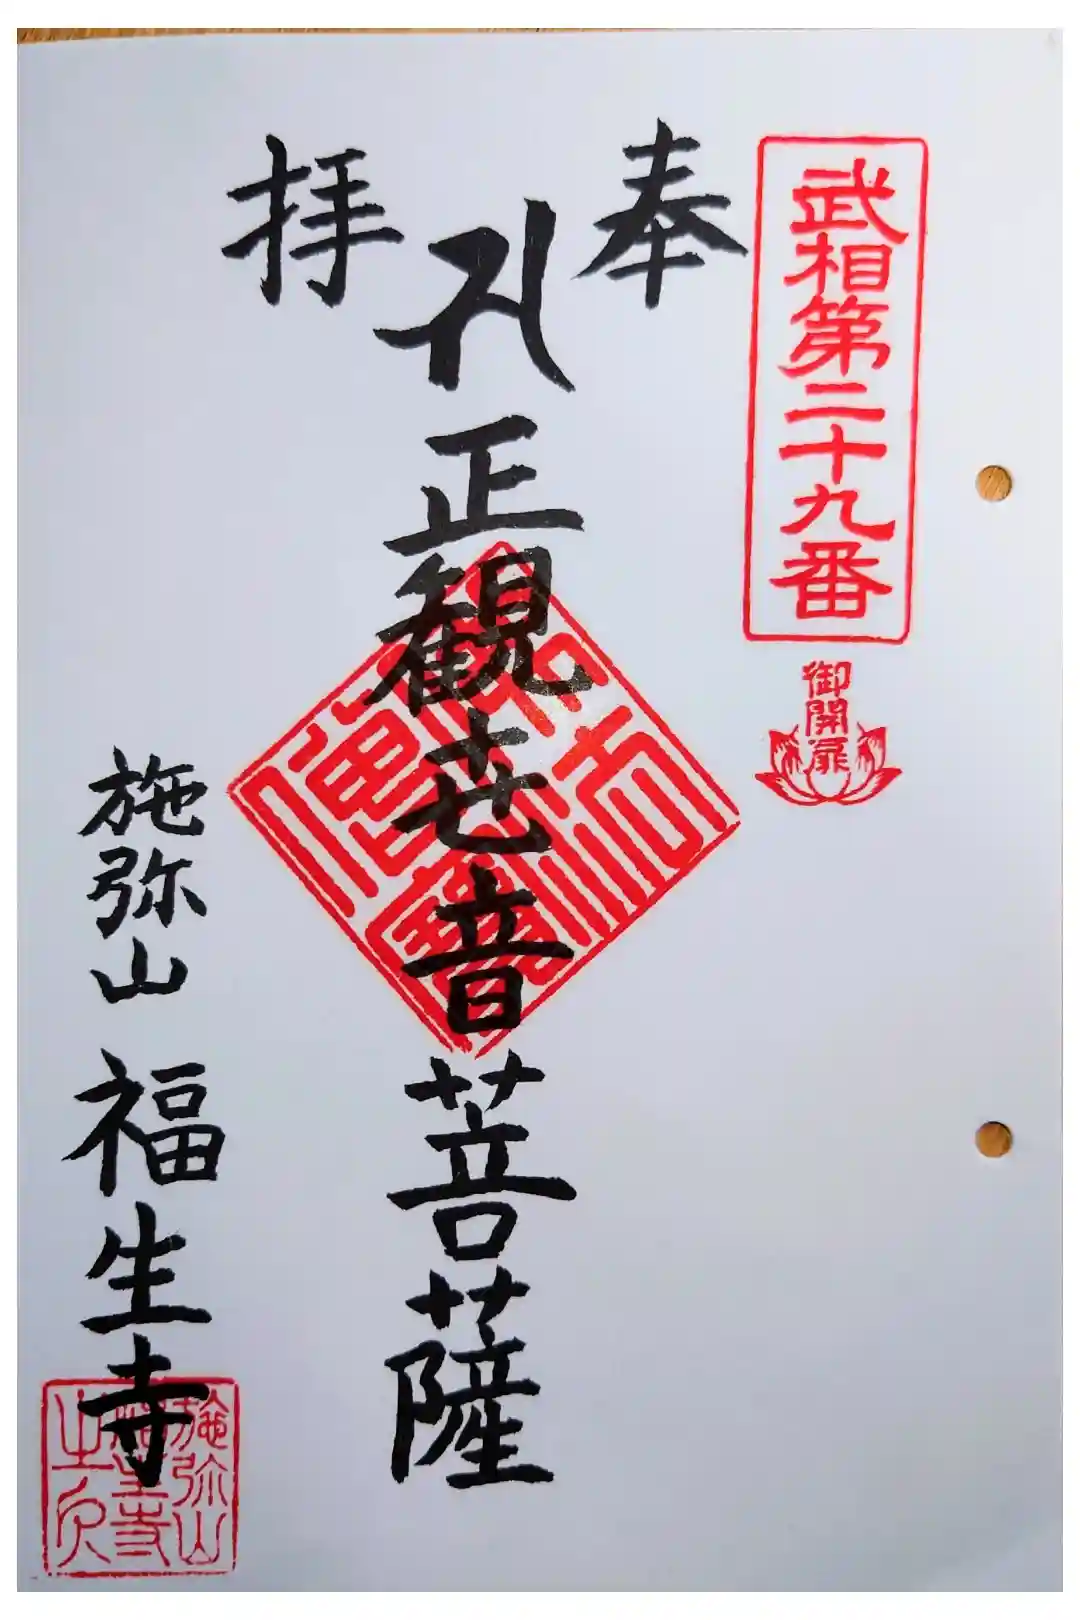 武相第二十九番
御開扉
奉拝
正観世音菩薩
施弥山 福生寺
施弥山
福生寺
之印